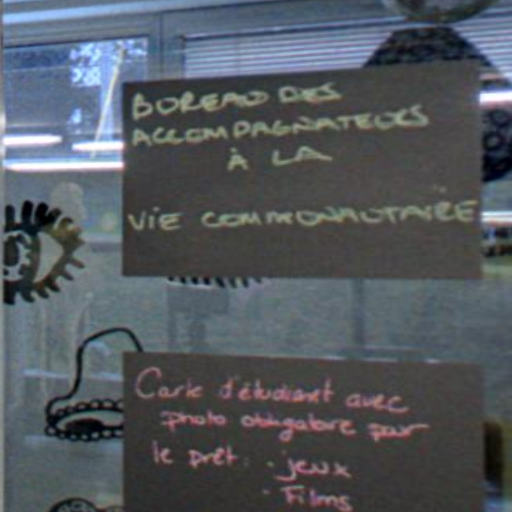 BUREAU DES
ACCOMPAGNATEURS
À LA
VIE COMMUNAUTAIRE
Carte d'étudiant avec
photo obligatoire pour
le prêt : · jeux
· Films